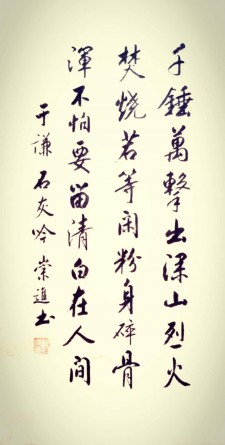 千錘萬擊出深山烈火
焚燒若等闲粉身碎骨
渾不怕要留清白在人間
于謙 石灰吟 崇進书